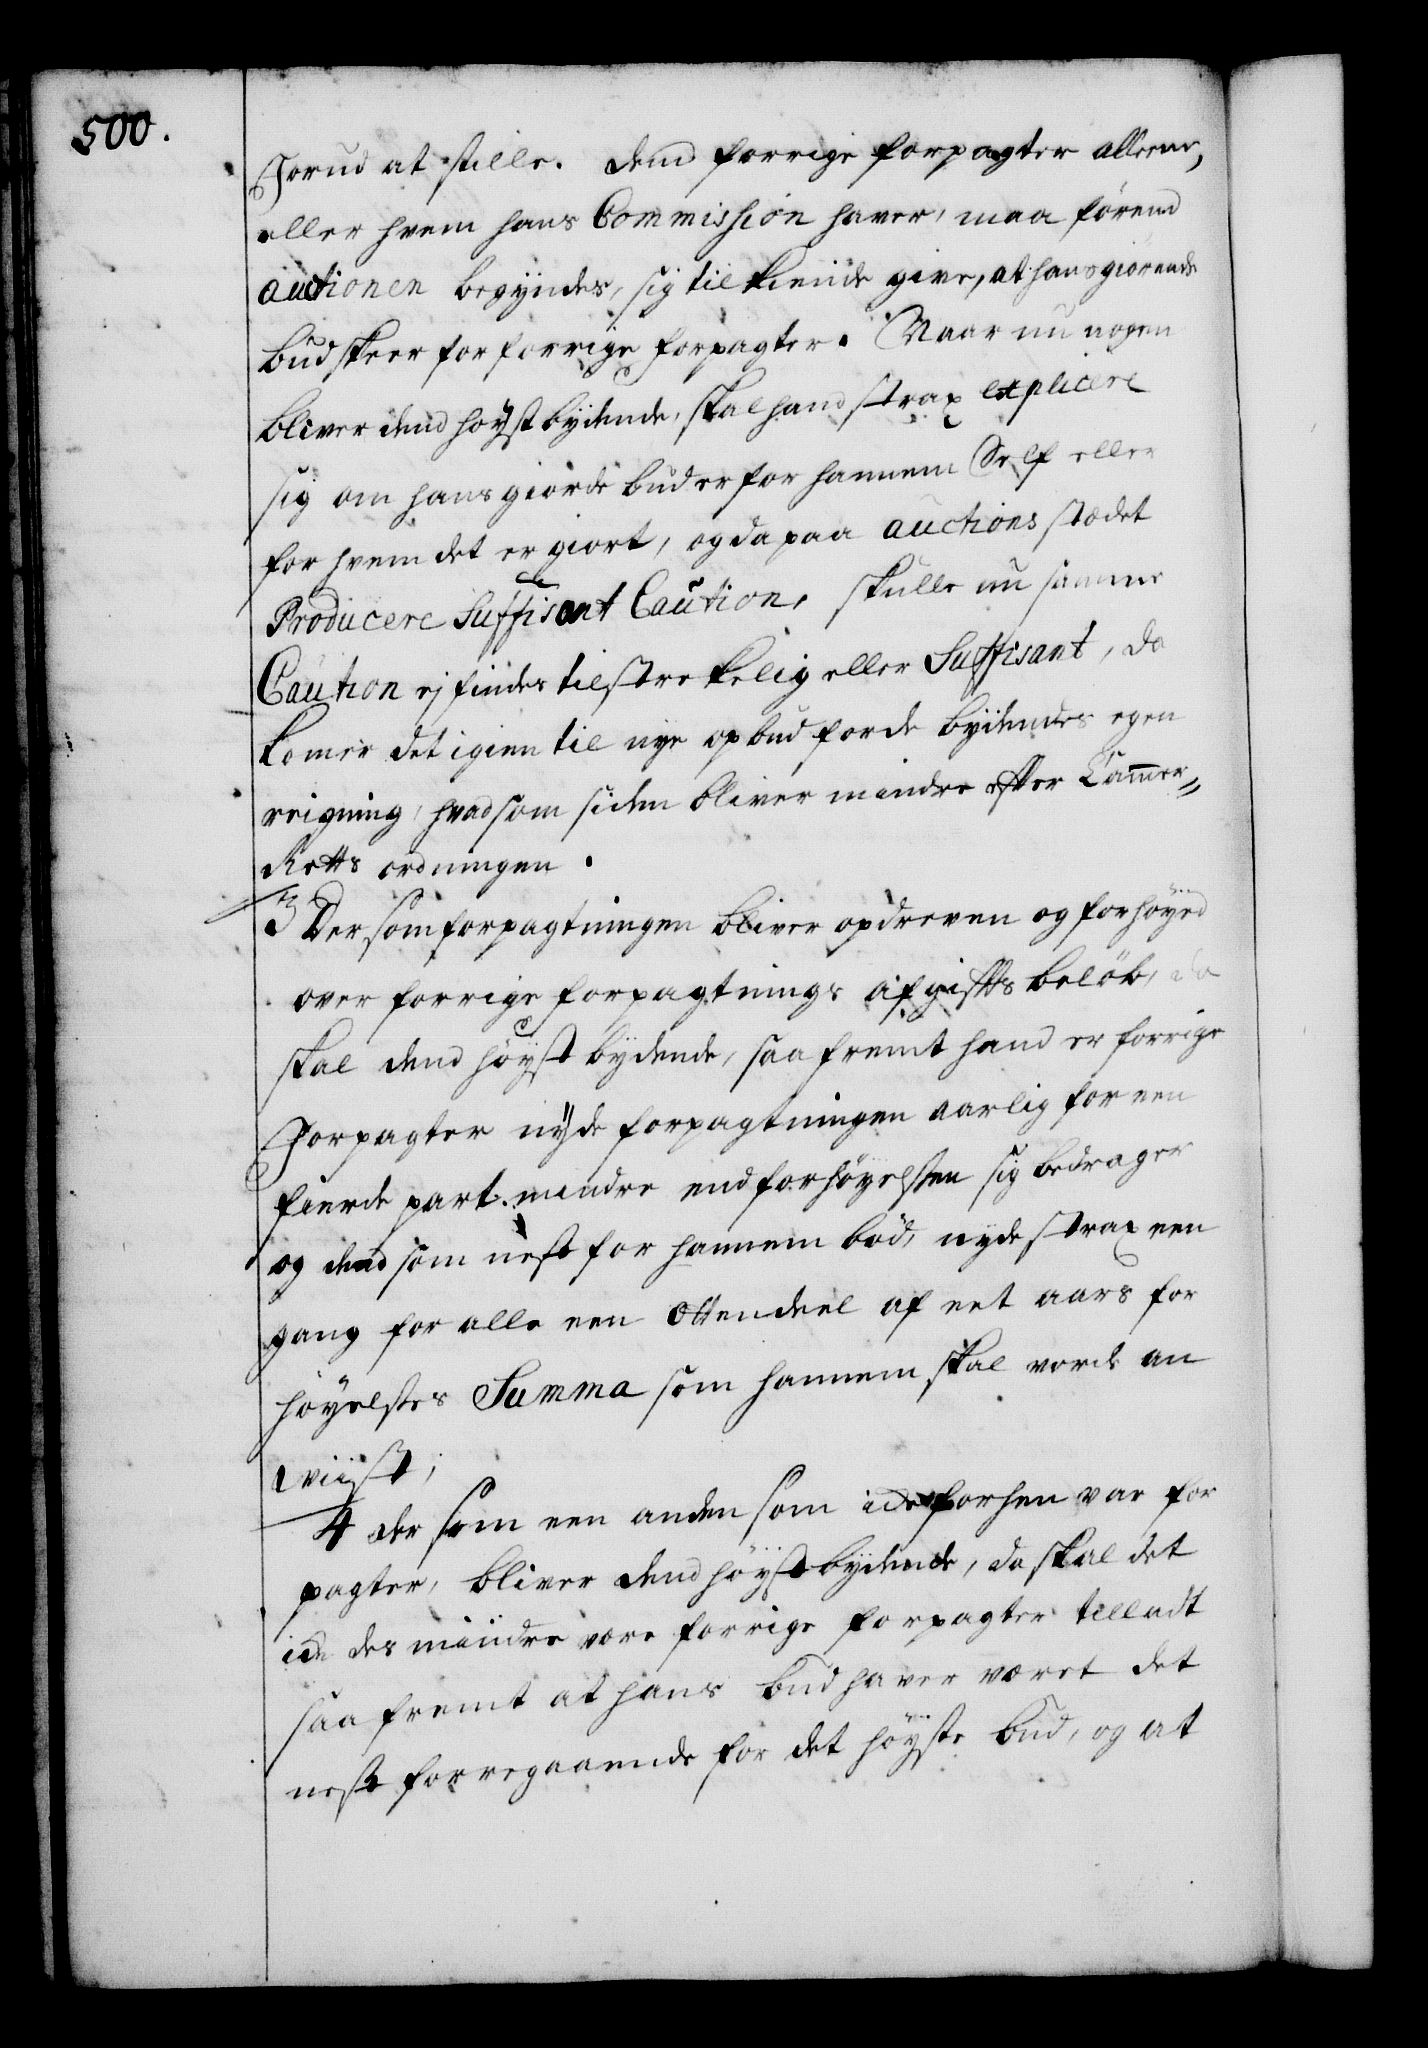 500.
Forud at stille. Dend forrige forpagter alleene,
eller hvem hans Commission haver, maa förend
auctionen begyndes, sig tilkiende give, at hans giörende
bud skeer for forrige forpagter. Naar nu nogen
bliver dend höystbydende, skal hand strax explicere
sig om hans giorde bud er for hannem Self eller
for hvem det er giort, og da paa auctions stædet
Producere Suffisant Caution, skulle nu samme
Caution ej findes tilstrekelig eller Suffisant, da
komer det igien til nye opbud for de bydendes egen
reigning, hvad som siden bliver mindre efter Camer„
Retts ordningen.
3 Dersom forpagtningen bliver opdreven og forhöyed
over forrige forpagtnings afgiffts belöb, da
skal dend höyst bydende, saafremt hand er forrige
Forpagter nyde forpagtningen aarlig for een
fierde part mindre end forhöyelsen sig bedrager
og dend som nest for hannem böd, nyde strax een
gang for alle een Ottendeel af eet aars for
höyelses Summa som hannem skal vorde an
viist;
4 der som een anden som icke forhen var for
pagter, bliver dend höystbydende, da skal det
icke des mindre være forrige forpagter tilladt
saa fremt at hans bud haver været det
nest forregaaende for det höyste bud, og at